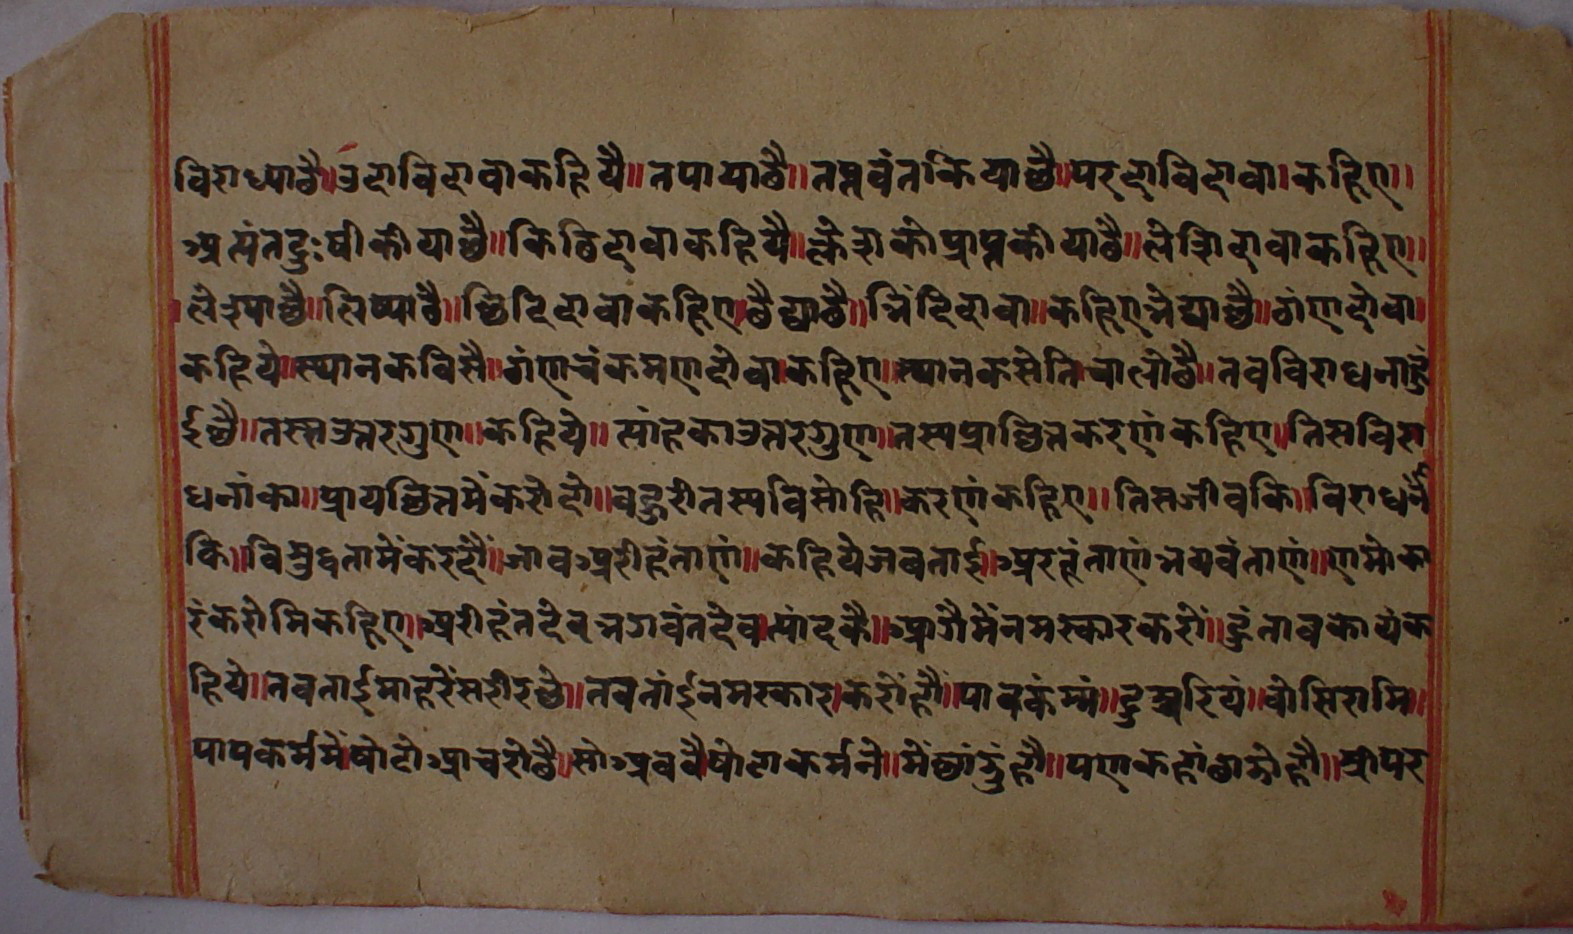 विराध्याछै॥उदाविदावाकहियै॥तपायाछै॥तप्तवंतकियाछै॥परदाविदावा।कहिए॥
अत्यंतदुःषीकीयाछै॥किछिदावाकहियै॥क्लेशकोप्राप्तकीयाछै॥लेशिदावाकहिए॥
लेश्याछै॥लिप्याछै॥छिदिदावाकहिए।छैद्याछै॥भिंदिदावा॥कहिए।भेद्याछै॥ठांणदोवा।
कहिये॥स्थानकविसै॥ठांणचंकमणदोवा।कहिए॥स्थानकसेतिचालीछै॥तवविराधनाहु
ईछै॥तस्सउत्तरगुण॥कहिये॥सांहकाउत्तरगुण॥तस्यप्राछित्तकरणंकहिए॥तिसविरा
धनांका॥प्रायछित्तमेंकरोहों॥बहुरीतस्यविसोहि॥करणंकहिए॥तिसजीवकि॥विराधनें
कि॥विसुद्धतामेंकरहौं॥जावअरीहंताणं॥कहियेजबताई॥अरहंताणंभयवंताणं॥णमोका
रंकरोमिकहिए॥अरीहंतदेवभगवंतदेव।त्यांहकै॥आगैमेंनमस्कारकरों॥हुंतावकायंक
हिये॥तबताईमाहरेंसरीरछे॥तबतांईनमस्कार।करोंहौं॥पावकंम्मं॥दुच्चरियं॥वोसिरामि॥
पापकर्ममेंषोटोआचरोछै॥सोअबवैषोटाकर्मने॥मेंछांडुंहौ॥पणकहांछाडोहौ॥श्रीपर